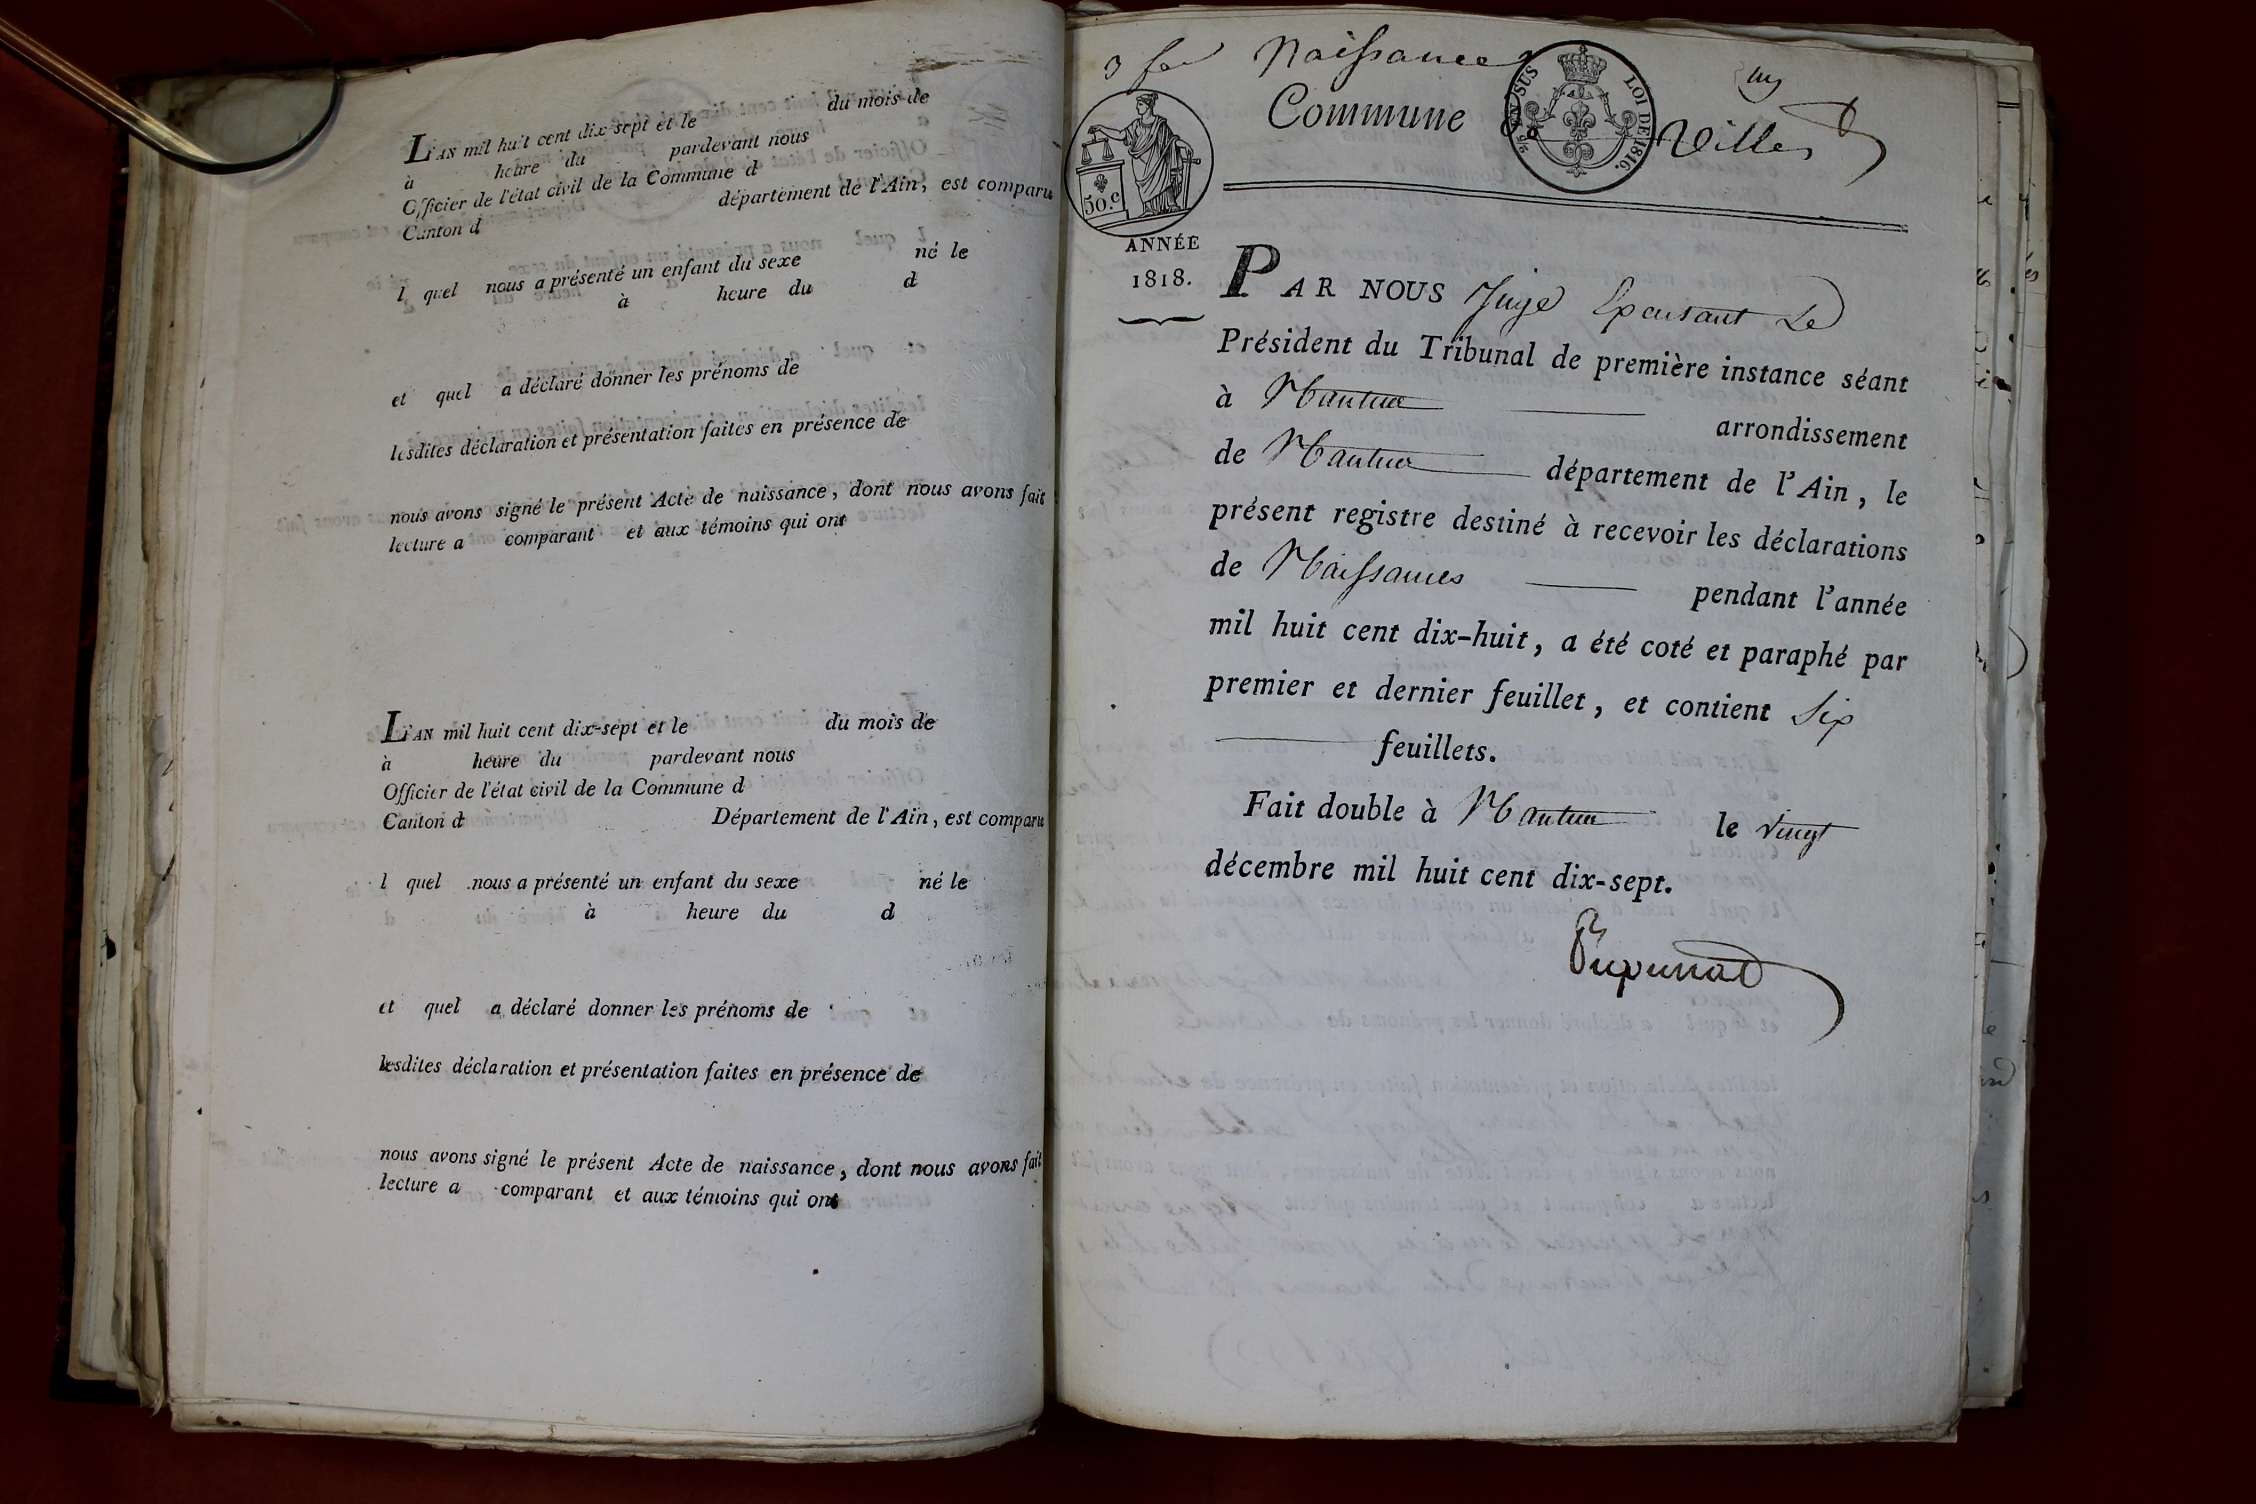 L'AN mil huit cent dix-sept et le du mois de
à heure du pardevant nous
Officier de l'état civil de la Commune d
Canton d département de l'Ain, est comparu
l quel nous a présenté un enfant du sexe né le
à heure du d
et quel a déclaré donner les prénoms de
lesdites déclaration et présentation faites en présence de
nous avons signé le présent Acte de naissance, dont nous avons fait
lecture a comparant et aux témoins qui ont
L'AN mil huit cent dix-sept et le du mois de
à heure du pardevant nous
Officier de l'état civil de la Commune d
Canton d Département de l'Ain, est comparu
l quel nous a présenté un enfant du sexe né le
à heure du d
et quel a déclaré donner les prénoms de
lesdites déclaration et présentation faites en présence de
nous avons signé le présent Acte de naissance, dont nous avons fait
lecture a comparant et aux témoins qui ont
Naissances
Commune Villes
EN SUS LOI DE 1816.
50.c
ANNÉE
1818.
PAR NOUS Juge Exerçant le
Président du Tribunal de première instance séant
à Nantua arrondissement
de Nantua département de l'Ain, le
présent registre destiné à recevoir les déclarations
de Naissances pendant l'année
mil huit cent dix-huit, a été coté et paraphé par
premier et dernier feuillet, et contient Six
feuillets.
Fait double à Nantua le vingt
décembre mil huit cent dix-sept.